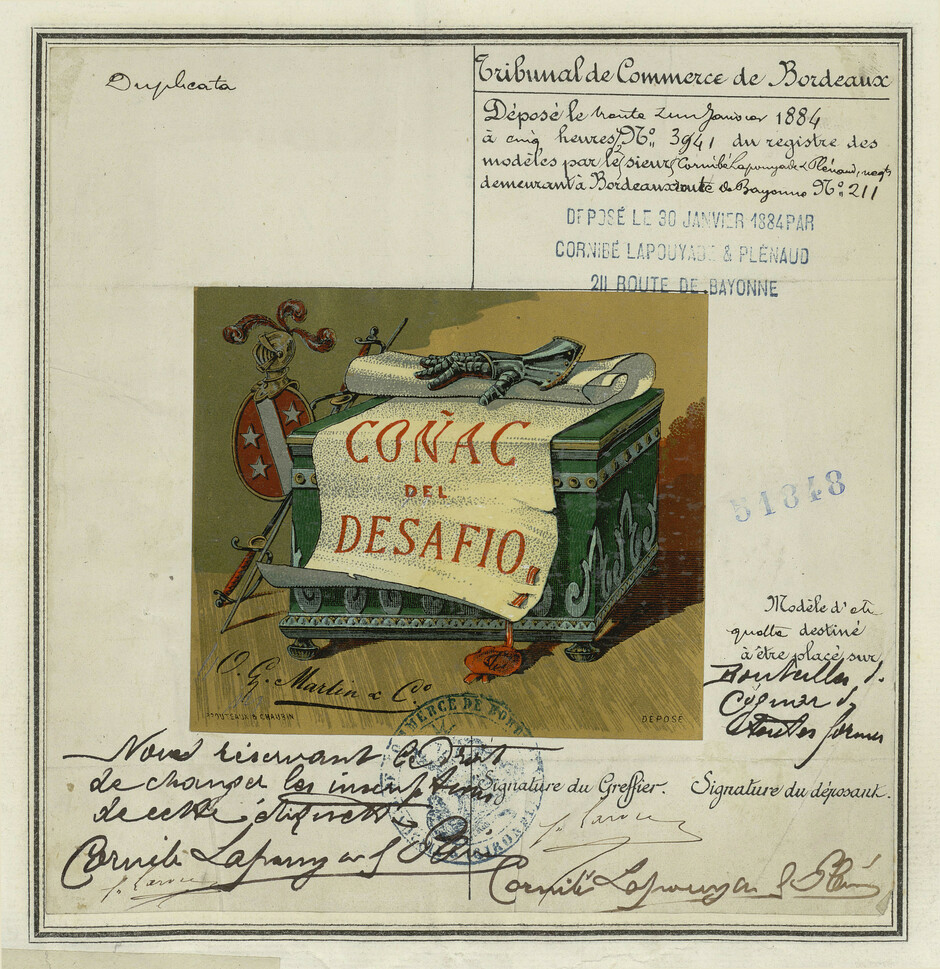 Duplicata
Tribunal de Commerce de Bordeaux
Déposé le trente Janvier 1884
à cinq heures No. 3941 du registre des
modèles par les sieurs Cornibé Lapouyade & Plénaud, negts
demeurant à Bordeaux route de Bayonne No. 211
DEPOSÉ LE 30 JANVIER 1884 PAR
CORNIBÉ LAPOUYADE & PLÉNAUD
211 ROUTE DE BAYONNE
COÑAC
DEL
DESAFIO
51848
Modèle d'eti
quette destiné
à être placé sur
Bouteilles
de toutes formes
O. G. Martin & Co.
CHAUBIN
DEPOSÉ
COMMERCE DE BORD
GIRONDE
Nous réservant le Droit
de changer les inscriptions
de cette étiquette
Signature du Greffier. Signature du déposant.
Cornibé Lapouyade & Plénaud
Cornibé Lapouyade & Plénaud